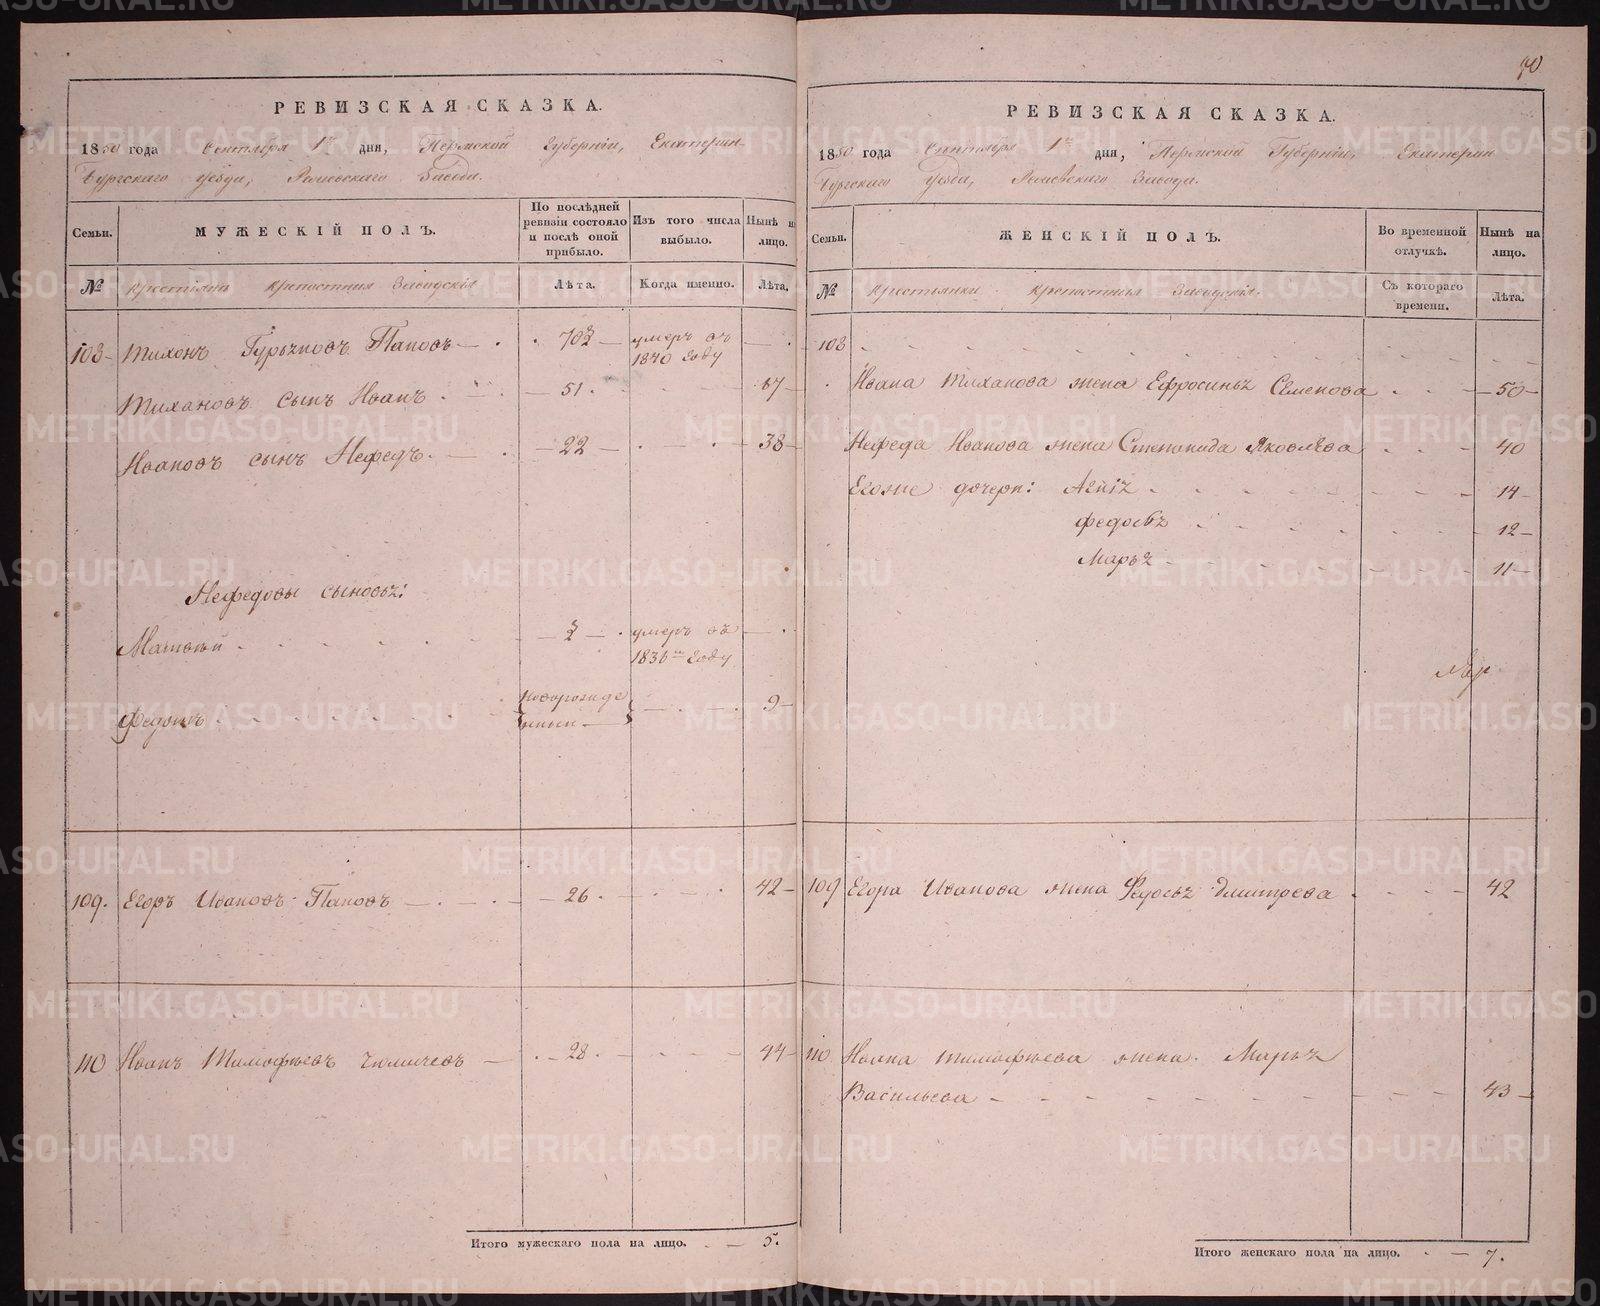 РЕВИЗСКАЯ СКАЗКА.
1850 года Сентября 1го дня, Пермской Губерніи, Екатерин
бургскаго уезда, Завода.
Семьи.
МУЖЕСКІЙ ПОЛЪ.
По послѣдней ревизіи состояло и послѣ оной прибыло.
Изъ того числа выбыло.
Нынѣ на лицо.
№
крестьянъ крепостныя Заводскія
Лѣта.
Когда именно.
Лѣта.
108 Тихонъ Гурьяновъ Паповъ 70½ умеръ въ 1840 Году
Тихановъ сынъ Иванъ. 51. 67
Ивановъ сынъ Нефедъ. 22 38
Нефедовы сыновьѣ:
Матвѣй ½ умеръ въ 1836м Году
Федотъ новорожденный 9
109. Егоръ Ивановъ Паповъ 26. 42
110 Иванъ Тимофѣевъ 28. 44
Итого мужескаго пола на лицо. 5.
90
РЕВИЗСКАЯ СКАЗКА.
1850 года Сентября 1го дня, Пермской Губерніи, Екатерин
бургскаго Уезда, Завода.
Семьи.
ЖЕНСКІЙ ПОЛЪ.
Во временной отлучкѣ.
Нынѣ на лицо.
№
Крестьянки крепостныя Заводскія.
Съ котораго времени.
Лѣта.
108
Ивана Тиханова жена Ефросиньѣ Семенова 50
Нефеда Иванова жена Степонида Яковлѣва 40
Егоже дочери: Агніѣ 14
Федосьѣ 12
Марьѣ 11
109 Егора Иванова жена Федосьѣ Дмитрева 42
110 Ивана тимофѣева жена. Марьѣ
Васильева 43
Итого женскаго пола на лицо. 7.
METRIKI.GASO-URAL.RU